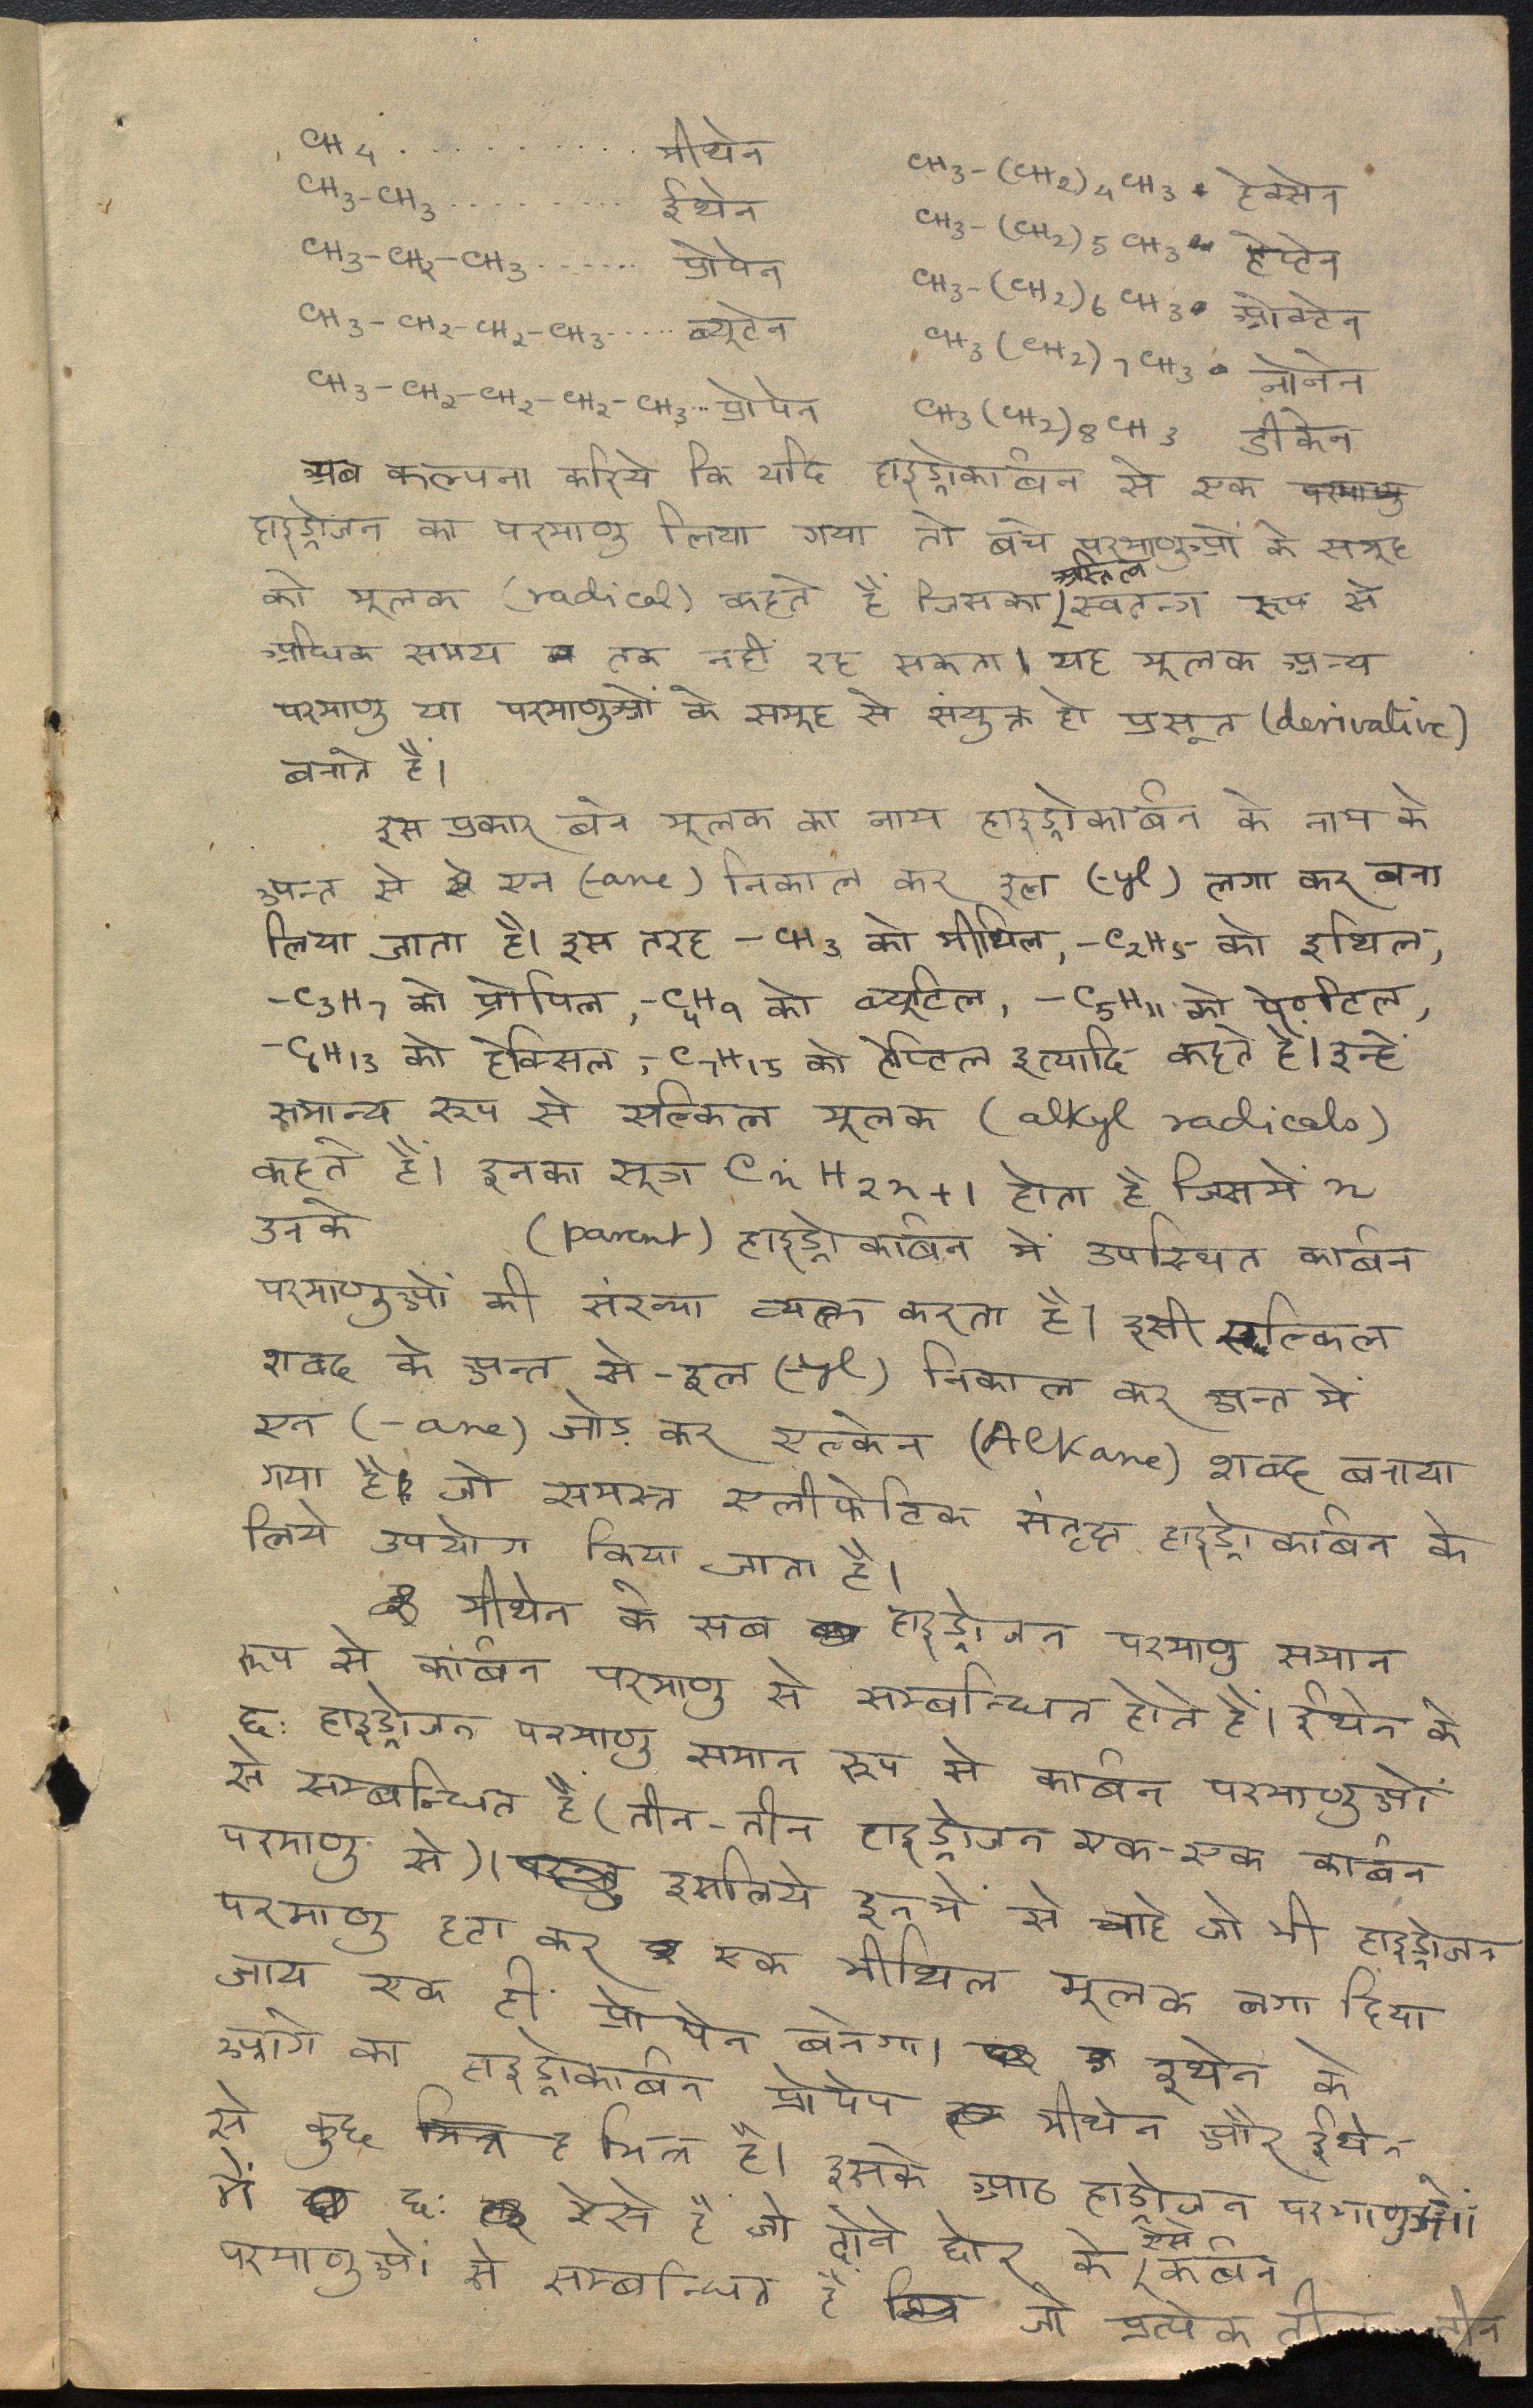 CH4 . . . . . . . . . . मीथेन
CH3-CH3 . . . . . . . . ईथेन
CH3-CH2-CH3 . . . . . . प्रोपेन
CH3-CH2-CH2-CH3 . . . . . ब्यूटेन
CH3-CH2-CH2-CH2-CH3 . . प्रोपेन
CH3-(CH2)4CH3 हेक्सेन
CH3-(CH2)5CH3 हेप्टेन
CH3-(CH2)6CH3 ओक्टेन
CH3(CH2)7CH3 नोनेन
CH3(CH2)8CH3 डीकेन
अब कल्पना करिये कि यदि हाइड्रोकार्बन से एक परमाणु
हाइड्रोजन का परमाणु लिया गया तो बचे परमाणुओं के समूह
को मूलक (radical) कहते हैं जिसका अस्तित्व स्वतन्त्र रूप से
अधिक समय तक नहीं रह सकता। यह मूलक अन्य
परमाणु या परमाणुओं के समूह से संयुक्त हो प्रसूत (derivative)
बनाते हैं।
इस प्रकार बने मूलक का नाम हाइड्रोकार्बन के नाम के
अन्त से एन (-ane) निकाल कर इल (-yl) लगा कर बना
लिया जाता है। इस तरह -CH3 को मीथिल, -C2H5 को इथिल,
-C3H7 को प्रोपिल, -C4H9 को ब्यूटिल, -C5H11 को पेण्टिल,
-C6H13 को हेक्सिल, -C7H15 को हेप्टिल इत्यादि कहते हैं। इन्हें
समान्य रूप से एल्किल मूलक (alkyl radicals)
कहते हैं। इनका सूत्र CnH2n+1 होता है जिसमें n
उनके (parent) हाइड्रोकार्बन में उपस्थित कार्बन
परमाणुओं की संख्या व्यक्त करता है। इसी एल्किल
शब्द के अन्त से -इल (-yl) निकाल कर अन्त में
एन (-ane) जोड़ कर एल्केन (Alkane) शब्द बनाया
गया है जो समस्त एलीफेटिक संतृप्त हाइड्रोकार्बन के
लिये उपयोग किया जाता है।
मीथेन के सब हाइड्रोजन परमाणु समान
रूप से कार्बन परमाणु से सम्बन्धित होते हैं। ईथेन के
छः हाइड्रोजन परमाणु समान रूप से कार्बन परमाणुओं
से सम्बन्धित हैं (तीन-तीन हाइड्रोजन एक-एक कार्बन
परमाणु से)। परन्तु इसलिये इनमें से चाहे जो भी हाइड्रोजन
परमाणु हटा कर एक मीथिल मूलक लगा दिया
जाय एक ही प्रोपेन बनेगा। इथेन के
आगे का हाइड्रोकार्बन प्रोपेप मीथेन और ईथेन
से कुछ भिन्न ह भिन्न है। इसके आठ हाड्रोजन परमाणुओं
में छः ऐसे हैं जो दोने छोर के ऐसे कार्बन
परमाणुओं से सम्बन्धित हैं जो प्रत्येक तीन